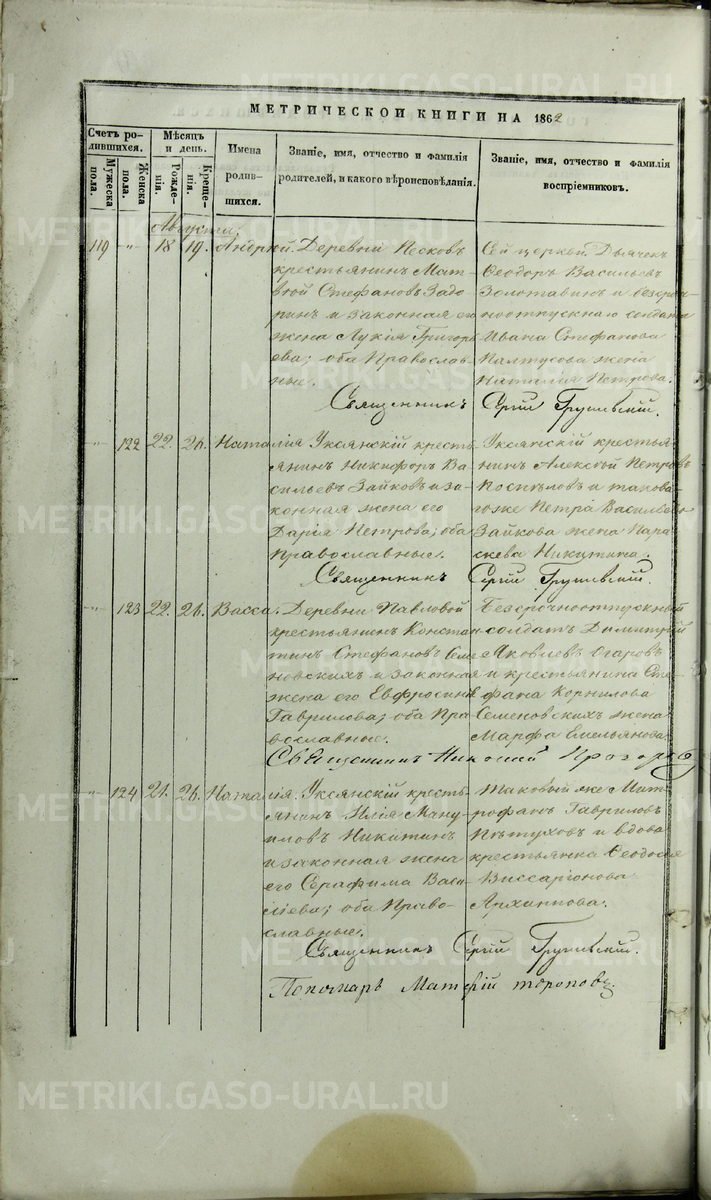 METRIKI.GASO-URAL.RU
МЕТРИЧЕСКОЙ КНИГИ НА 1862
Счетъ ро-
дившихся.
Мужеска
пола.
Женска
пола.
Мѣсяцъ
и день.
Рожде-
нія.
Креще-
нія.
Имена
родив-
шихся.
Званіе, имя, отчество и фамилія
родителей, и какого вѣроисповѣданія.
Званіе, имя, отчество и фамилія
воспріемниковъ.
Августъ.
119 " 18 19. Андрей.
Деревни Песковъ
крестьянинъ Мат-
вѣй Стефановъ Задо-
ринъ и законная его
жена Лукія Григорь-
ева; оба Православ-
ные.
Сей церкви Дьячекъ
Ѳеодоръ Васильевъ
Золотавинъ и безсроч-
ноотпускнаго солдата
Ивана Стефанова
Палтусова жена
Наталія Петрова.
Священникъ Сергій
" 122 22. 26. Наталія
Уксянскій кресть-
янинъ Никифоръ Ва-
сильевъ Зайковъ и за-
конная жена его
Дарія Петрова; оба
Православные.
Уксянскій крестья-
нинъ Алексѣй Петровъ
Поспѣловъ и таково-
гоже Петра Васильева
Зайкова жена Пара-
скева Никитина.
Священникъ Сергій
" 123 22. 26. Васса.
Деревни Павловой
крестьянинъ Констан-
тинъ Стефановъ Семе-
новскихъ и законная
жена его Евфросинія
Гаврилова; оба Пра-
вославные.
Безсрочноотпускный
солдатъ Димитрій
Яковлевъ Огаровъ
и крестьянина Сте-
фана Корнилова
Семеновскихъ жена
Марфа Емельянова.
Священникъ Николай
" 124 21. 26. Наталія.
Уксянскій кресть-
янинъ Илія Ману-
иловъ Никитинъ
и законная жена
его Серафима Васи-
ліева; оба Право-
славные.
Таковый же Мит-
рофанъ Гавриловъ
Пѣтуховъ и вдова
крестьянка Ѳеодосія
Виссаріонова
Архипова.
Священникъ Сергій
Пономарь Матѳій Тороповъ.